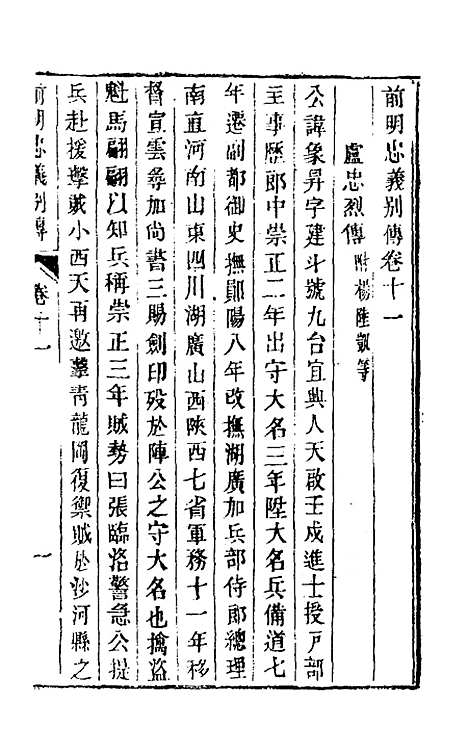 前明忠義別傳卷十一
盧忠烈傳附楊陸凱等
公諱象昇字建斗號九台宜興人天啟壬戌進士授戸部
主事歷郎中崇正二年出守大名三年陞大名兵備道七
年遷副都御史撫鄖陽八年改撫湖廣加兵部侍郎總理
南直河南山東四川湖廣山西陝西七省軍務十一年移
督宣雲尋加尚書三賜劍印歿於陣公之守大名也擒盜
魁馬翩翩以知兵稱崇正三年賊勢曰張臨洛警急公提
兵赴援擊賊小西天再邀擊靑龍岡復禦賊於沙河縣之
前明忠義別傳 卷十一 一